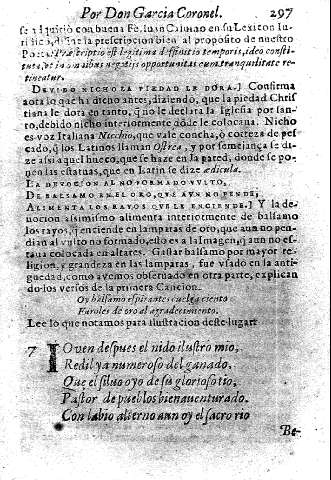 Por Don Garcia Coronel. 297
se adquiriò con buena Fe, Iuan Calvino en su Lexicon Iu-
ridico, difine la prescripcion bien al proposito de nuestro
Poeta: Præscriptio est legitima definitio temporis, ideo consti-
tuta, et in omnibus negotijs opportunitas cum tranquilitate re-
tineatur.
DEVIDO NICHO LA PIEDAD LE DORA.] Confirma
aora lo que ha dicho antes, diziendo, que la piedad Chris
tiana le dora en tanto, q̃ no le declara la Iglesia por san-
to, debido nicho interiormente adõde le colocana. Nicho
es voz Italiana Nicchio, que vale concha, ò corteza de pes-
cado, q̃ los Latinos llaman Ostrea, y por semejança se di-
ze assi aquel hueco, que se haze en la pared, donde se po-
nen las estatuas, que en Latin se dize ædicula.
LA DEVOCION AL NO FORMADO VVLTO,
DE BALSAMO EN EL ORO, QVE AVN NO PENDE,
ALIMENTA LOS RAYOS QVE LE ENCIENDE.] Y la de-
uocion assimismo alimenta interiormente de balsamo
los rayos, q̃ enciende en lamparas de oro, que aun no pen-
dian al vulto no formado, esto es a la Imagen, q̃ aun no es-
taua colocada en altares. Gastar balsamo por mayor re-
ligion, y grandeza en las lamparas, fue vsado en la anti-
guedad, como avemos observado en otra parte, explican
do los versos de la primera Cancion.
Oy balsamo espirantes cuelga ciento
Faroles de oro al agradecimiento.
Lee lo que notamos para ilustracion deste lugar.
7 IOven despues el nido ilustrò mio,
Redil ya numeroso del ganado.
Que el siluo oyo de su glorioso tio,
Pastor de pueblos bienauenturado.
Con labio alterno aun oy el sacro rio
Be-